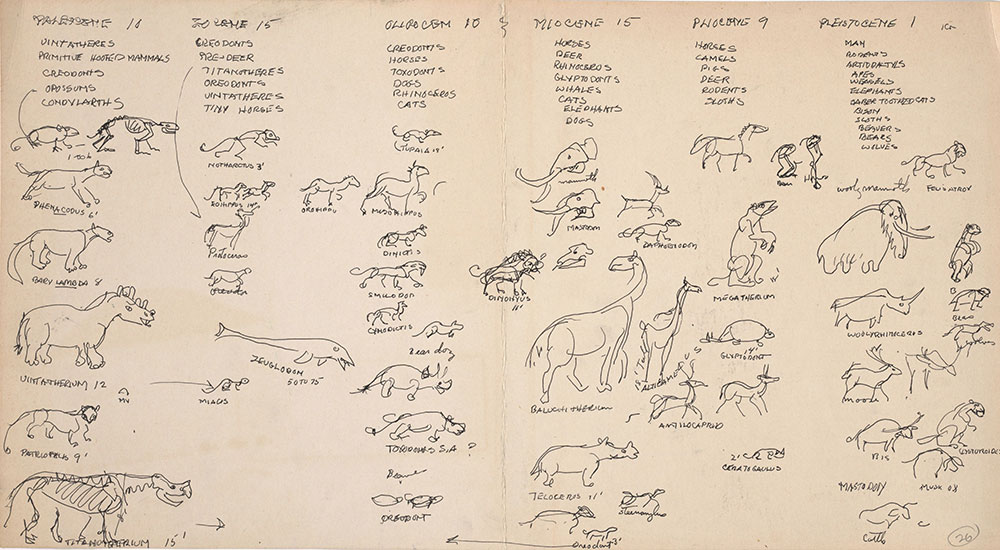 PALEOCENE
EOCENE 15
OLIGOCEN 10
MIOCENE 15
PLIOCENE 9
PLEISTOCENE 1
UINTATHERES
PRIMITIVE HOOFED MAMMALS
CREODONTS
OPOSSUMS
CONDYLARTHS
CREODONTS
PRE-DEER
TITANOTHERES
OREODONTS
UINTATHERES
TINY HORSES
CREODONTS
HORSES
TOXODONTS
DOGS
RHINOCEROS
CATS
HORSES
DEER
RHINOCEROS
GLYPTODONTS
WHALES
CATS
ELEPHANTS
DOGS
HORSES
CAMELS
PIGS
DEER
RODENTS
SLOTHS
MAN
RODENTS
ARTIODACTYLS
APES
WEASELS
ELEPHANTS
SABER TOOTHED CATS
BISON
SLOTHS
BEAVERS
BEARS
WOLVES
PHENACODUS 6'
BARYLAMBDA 8
UINTATHERIUM 12
PATRIOFELIS 9'
TITANOTHERIUM 15'
NOTHARCTUS 3'
EOHIPPUS
OROHIPPU
ZEUGLODON
50 TO 75
MIACIS
TUPAIA
MESOHIPPUS
DINICTIS
SMILODON
CYNODICTIS
Bear dog
TOXODONS S.A
?
OREODONT
DINOHYUS
11'
mammoth
MASTODON
DAPHOENODON
BALUCHITHERIUM
ALTICAMELUS
TELOCERUS 11'
Oreodont 3'
MEGATHERIUM
GLYPTODONT
14'
ANTILOCAPRID
2'
CERATOGAULUS
wooly mammoth
WOOLYRHINOCEROS
moose
BIS
MUSK OX
MASTODON
Cattle
26